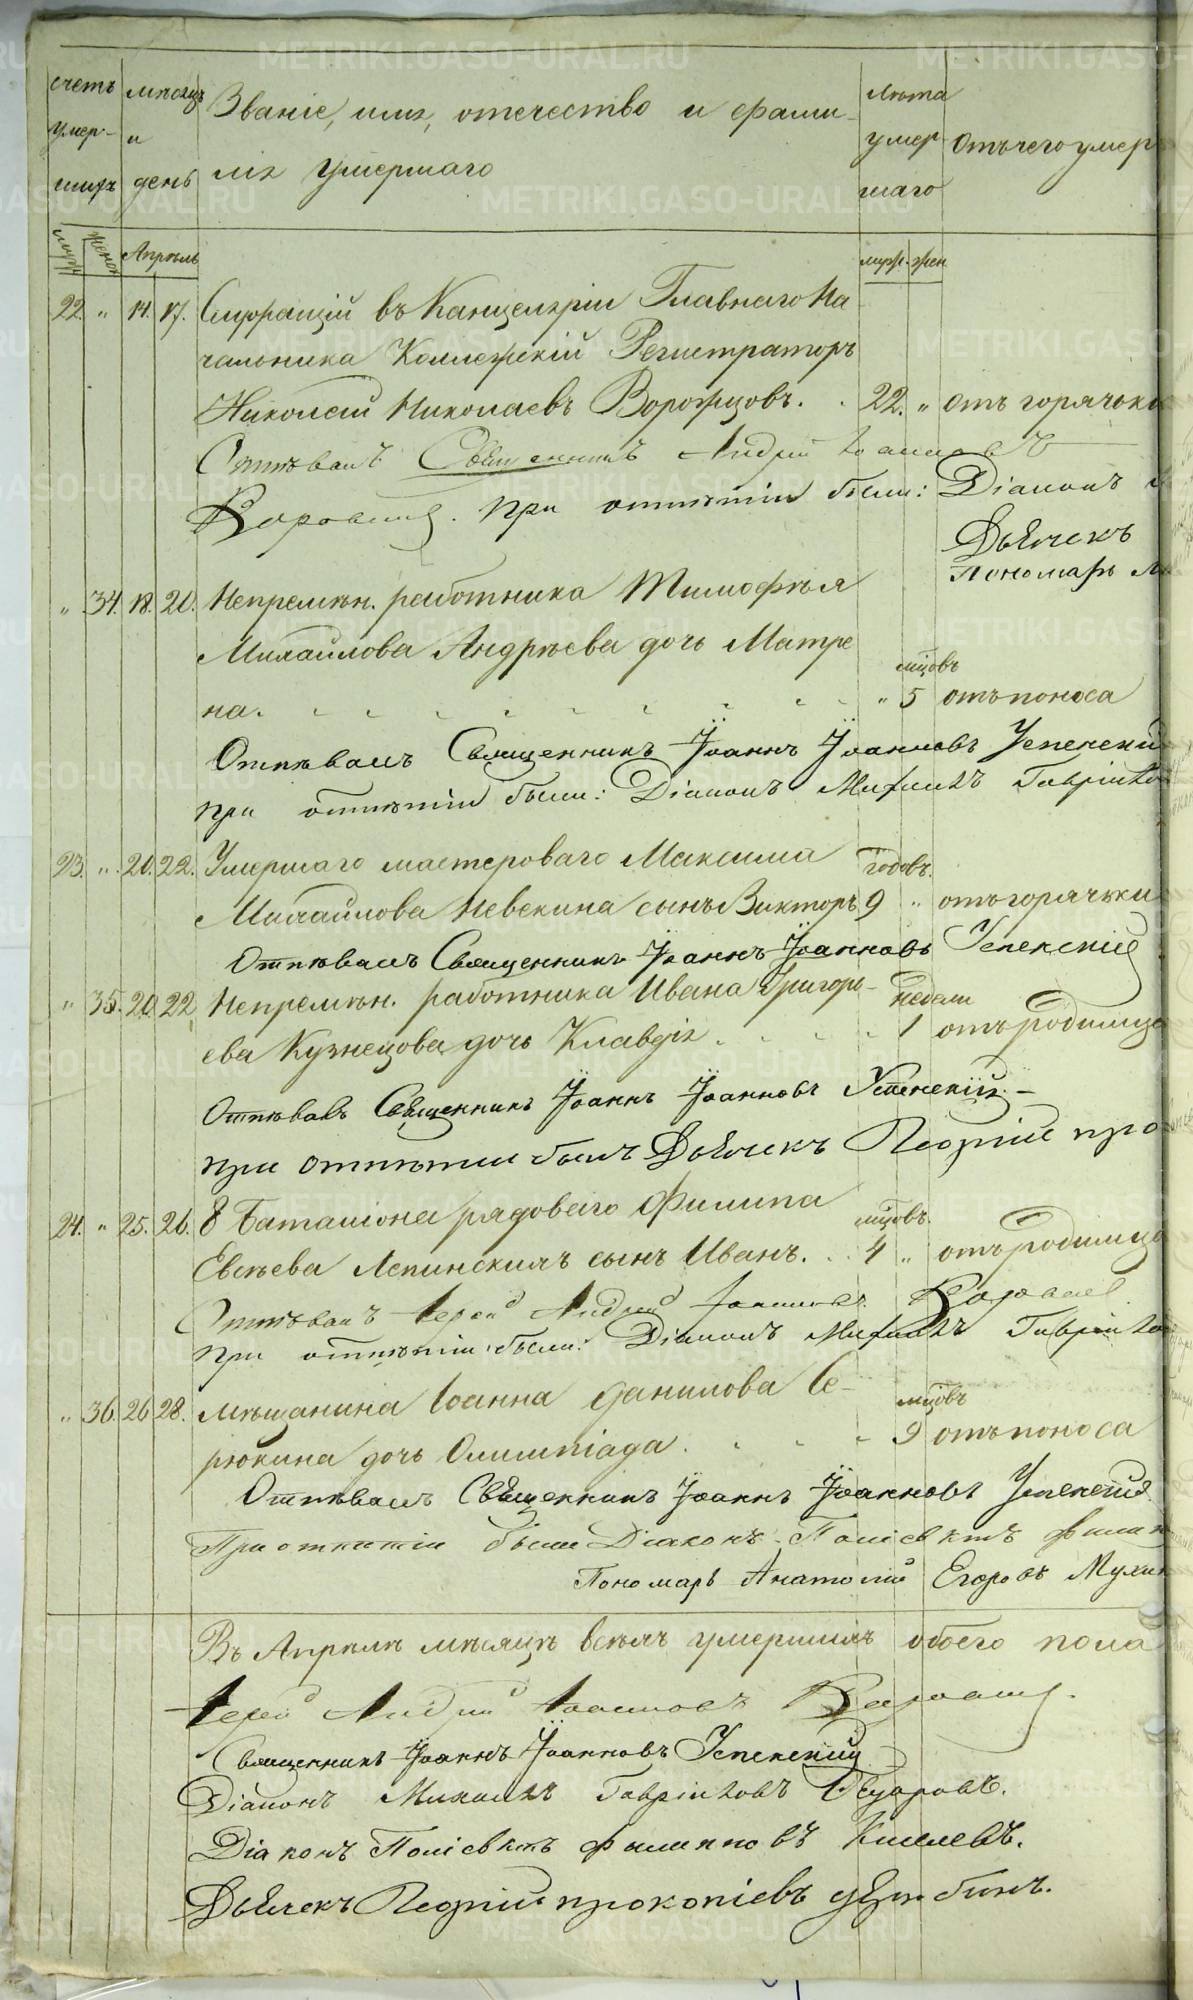 счетъ умер- шихъ
мѣсяцъ и день
Званіе, имя, отечество и фами-
лія умершаго
лѣта умер- шаго
Отъ чего умер
муж. женск. Апрѣль муж. жен
22. " 14. 17. Служащій въ Канцеляріи Главнаго На
чальника Коллежскій Регистраторъ
Николай Николаевъ Ворожцовъ. . 22. " отъ горячк
Отпѣвалъ Священникъ Андрей Іоанновъ
при отпѣтіи были: Діаконъ
Дьячекъ
Пономарь
" 34. 18. 20. Непремѣн. работника Тимофѣя
Михайлова Андрѣева дочь Матре
мѣцовъ
на. " 5 отъ поноса
Отпѣвалъ Священникъ Іоаннъ Іоанновъ Успенскі
при отпѣтіи были: Діаконъ Михаилъ Гавріило
23. " 20. 22. Умершаго мастероваго Максима годовъ.
Михайлова Невекина сынъ Викторъ 9 " отъ горячки
Отпѣвалъ Священникъ Іоаннъ Іоанновъ Успенскій
" 35. 20. 22 Непремѣн. работника Ивана Григорь- недели
ева Кузнецова дочь Клавдія . 1 отъ родимца
Отпѣвалъ Священникъ Іоаннъ Іоанновъ Успенскій. –
при отпѣтіи былъ Дьячекъ Георгій про
24. " 25. 26. 8 Баталіона рядоваго Филипа мѣцовъ.
Евсѣева Лепинскихъ сынъ Иванъ. . 4 " отъ родимца
Отпѣвалъ Іерей Андрей Іоанновъ
при отпѣтіи были: Діаконъ Михаилъ Гавріило
" 36. 26 28. мѣщанина Іоанна Данилова Се- мѣцовъ
рюкина дочь Олимпіада. 9 отъ поноса
Отпѣвалъ Священникъ Іоаннъ Іоанновъ Успенскій
При отпѣтіи были Діаконъ Поліевктъ Филип
Пономарь Анатолій Егоровъ Мухин
Въ Апрѣлѣ мѣсяцѣ всѣхъ умершихъ обоего пола
Іерей Андрей Іоанновъ
Священникъ Іоаннъ Іоанновъ Успенскій
Діаконъ Михаилъ Гавріиловъ
Діаконъ Поліевктъ Филипповъ Киселевъ.
Дьячекъ Георгій прокопіевъ